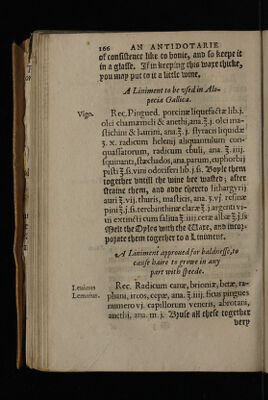 166 AN ANTIDOTARIE
of consistence like to honie, and so keepe it
in a glasse. If in keeping this waxe thicke,
you may put to it a little wine.
A Liniment to be vsed in Alo-
pecia Gallica.
Vigo. Rec. Pingued. porcinæ liquefactæ lib.j.
olei chamæmeli & anethi, ana.℥.j. olei ma-
stichini & laurini, ana.℥.j. styracis liquidæ
℥.x. radicum helenij aliquantulum con-
quassatorum, radicum ebuli, ana.℥.iij.
squinanti, stæchados, ana.parum, euphorbij
ʒ.ß. vini odoriferi lib.j.ß. Boyle them
together vntill the wine bee wasted; after
straine them, and adde thereto lithargyrij
auri ℥.vij. thuris, mastices, ana.
pini ℥.j.ß. terebinthinæ claræ ℥.j argenti vi-
ui extincti cum saliua ℥.iiij. ceræ albæ ℥.j.ß
Melt the Oyles with the Waxe, and incor-
porate them together to a Liniment.
A Liniment approued for baldnesse, to
cause haire to growe in any
part with speede.
Leuinus Rec. Radicum cannæ, brioniæ, betæ, ra-
Lemnius. phani, ireos, cepæ, ana.℥.iij. ficus pingues
numero vj. capillorum veneris, abrotani,
anethi, ana.m.j. Bruse all these together
very